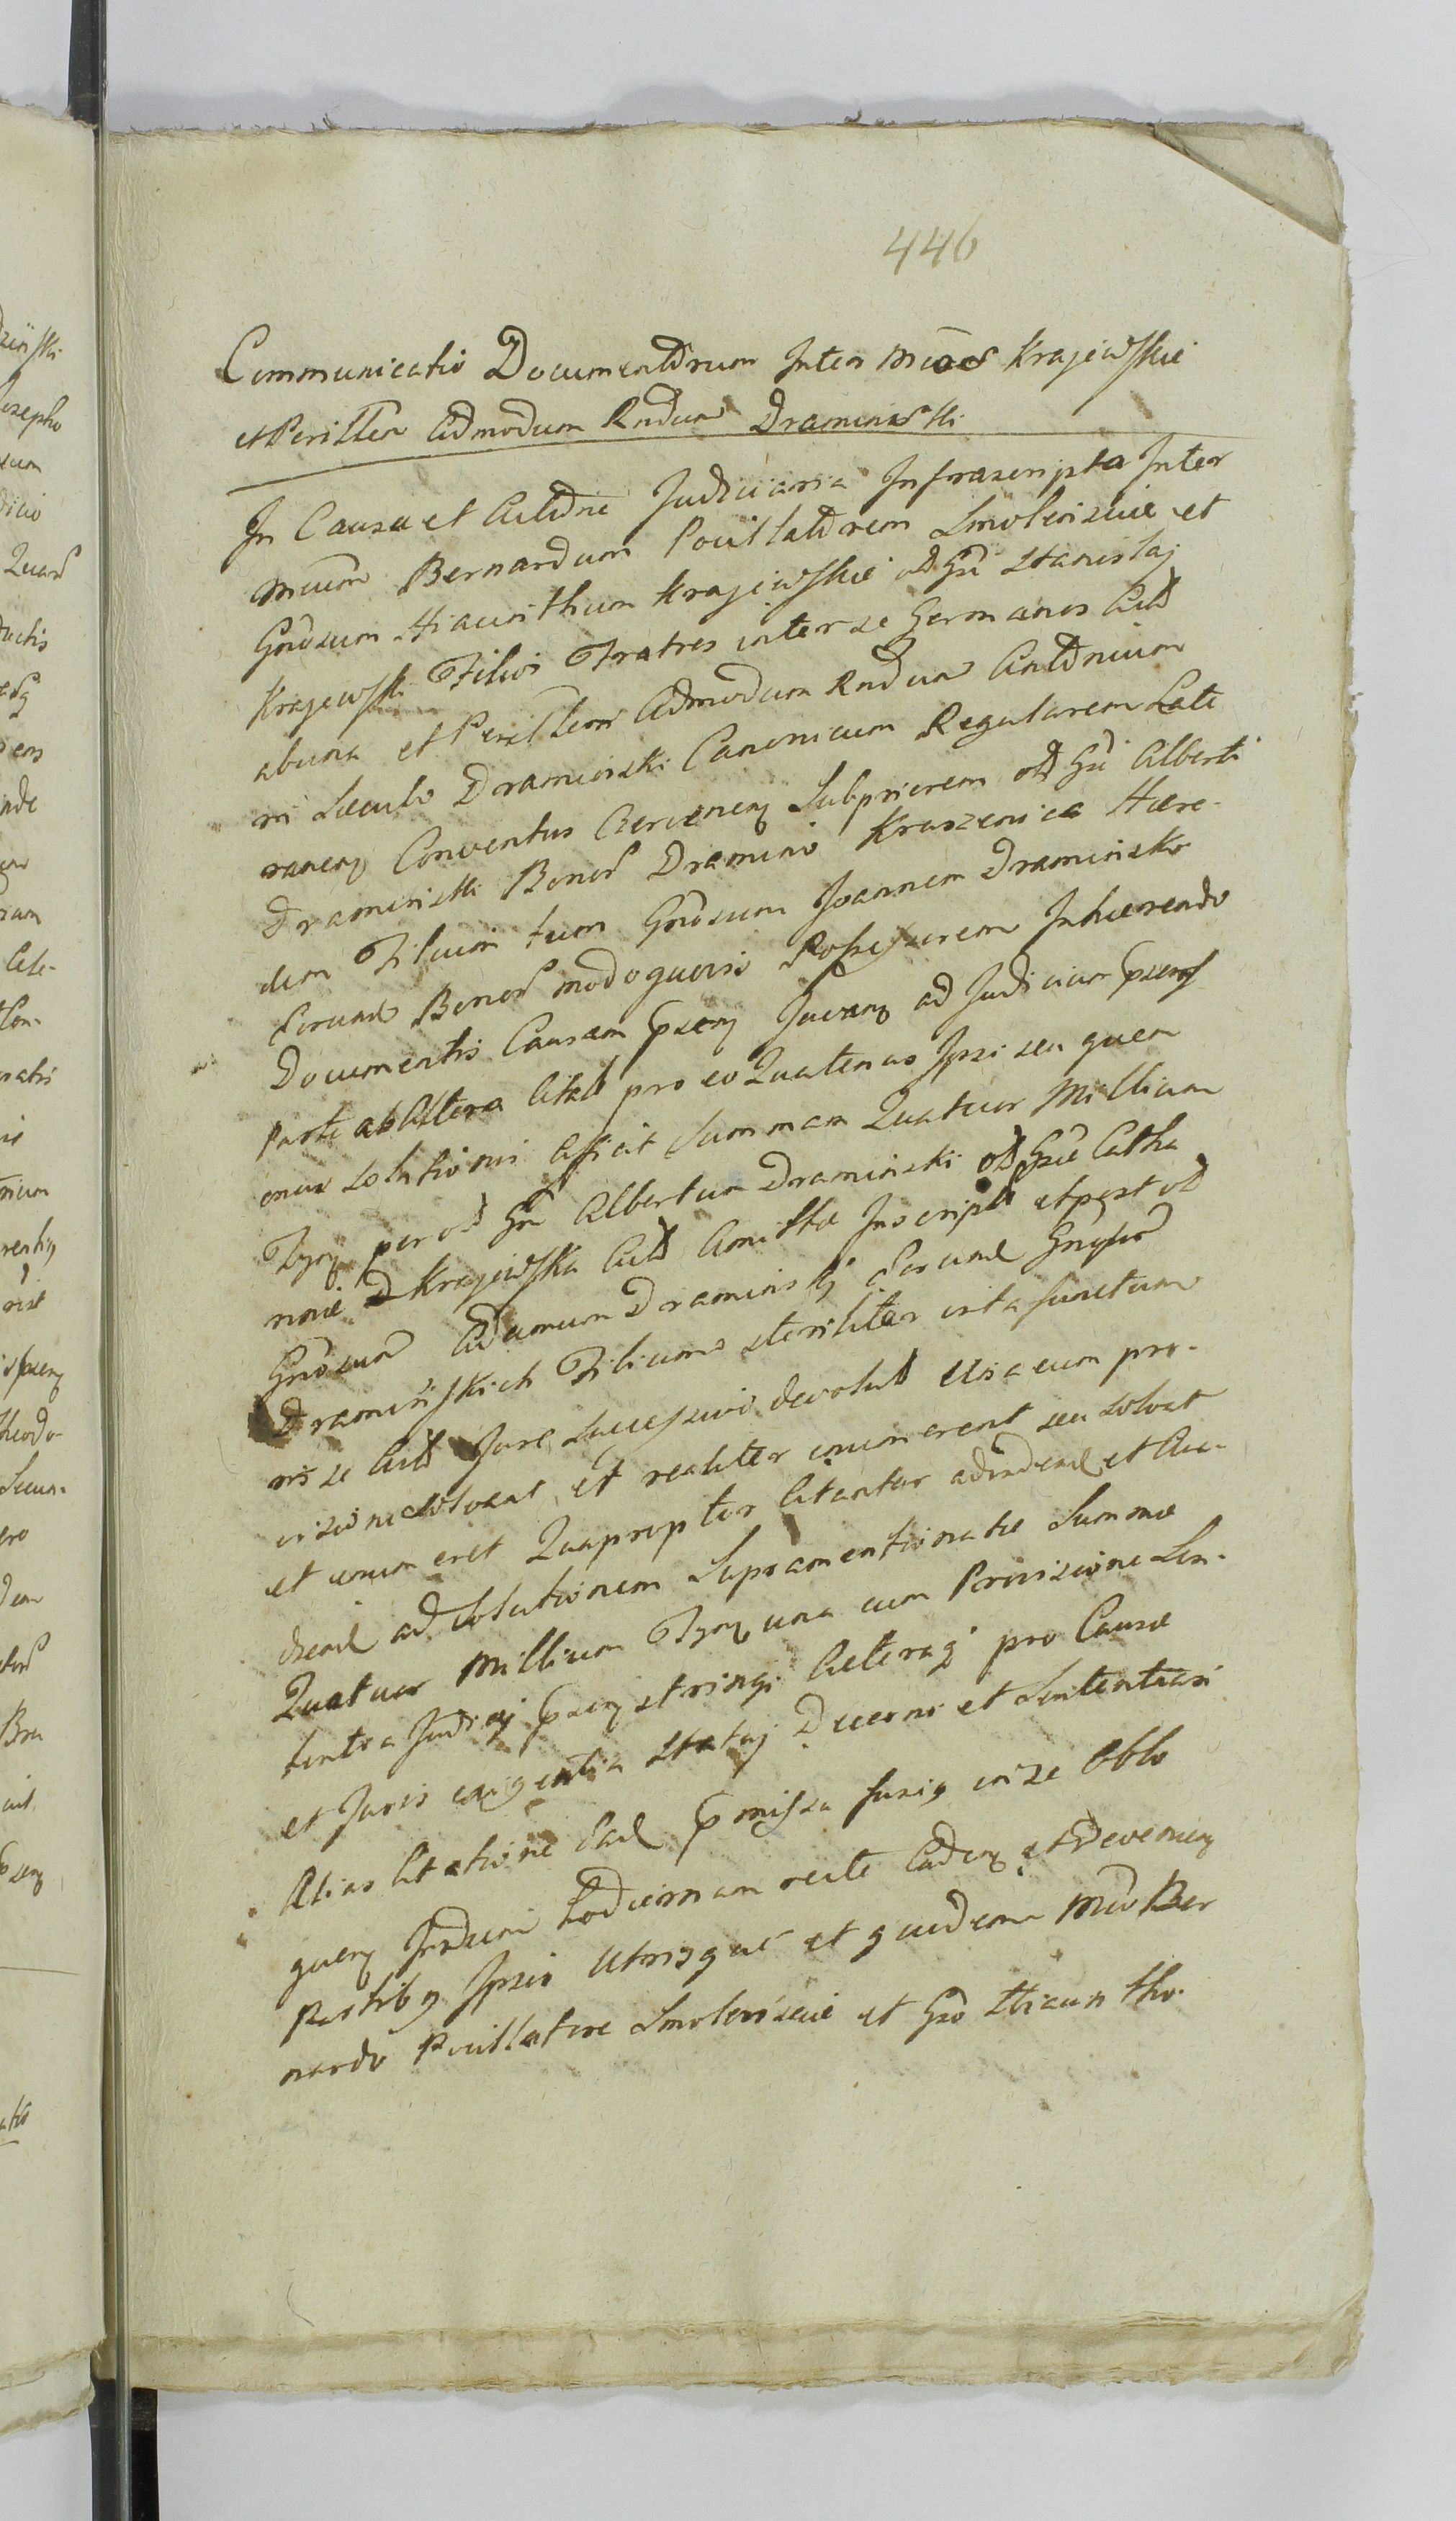 446
Communicatio Documentorum Inter Mcos Krajewskie
et Perillem Admodum Rndum Draminski
In Causa et Actione Judiciaria Infrascripta Inter
Mcum Bernardum Pocillatorem Smolenscie et
Gnosum Hiacinthum Krajewskie olt Gsi Stanislaj
Krajewski Filios Fratres inter se Germanos Act
ab una et Perillem Admodum Rndum Antonium
in Saeculo Draminski Canonicum Regularem Late
ranenq Conventus Cervenenq Subpriorem olt Gsi Alberti
Draminski Bonor Dramino Kraszenica Haere-
dem Filium tum Gnosum Joannem Draminsko
Eorund Bonor modoquovis Possessorem Inhaerendo
Documentis Causam psenq Juvanq ad Judicium psens
Parte ab Altera Citat pro eo Quatenus Ipsi seu quem
onus solutionis afficit Summam Quatuor Millium
Fpnq per olt Gn Albertum Draminski olt Gsae Catha
rinae Krajewska Act Amittae Inscript et post olt
Gnosum Adamum Draminskj Eorund Gnosor
Draminskich Filium steriliter vita functum
in se Act Jure Successivo devolut una cum pro-
visione solvant et realiter enumerent seu solvat
et enumeret Quapropter Citantur advidend et Au-
diend ad Solutionem Supramentionatae Summae
Quatuor Millium Fpnq una cum Provisione Sen-
tentia Judicij psenq stringi Caeteraq pro Causae
et Juris exigentia Statuj Decerni et Sententiari
Alias Citatione Ead pmissa fusiq in se Obllo
quenq Induci hodiernam recte Cadenq et Devenienq
Partibq Ipsis Utrisque et quidem Mco Ber
nardo Pocillatore Smolenscie et Gso Hiacintho